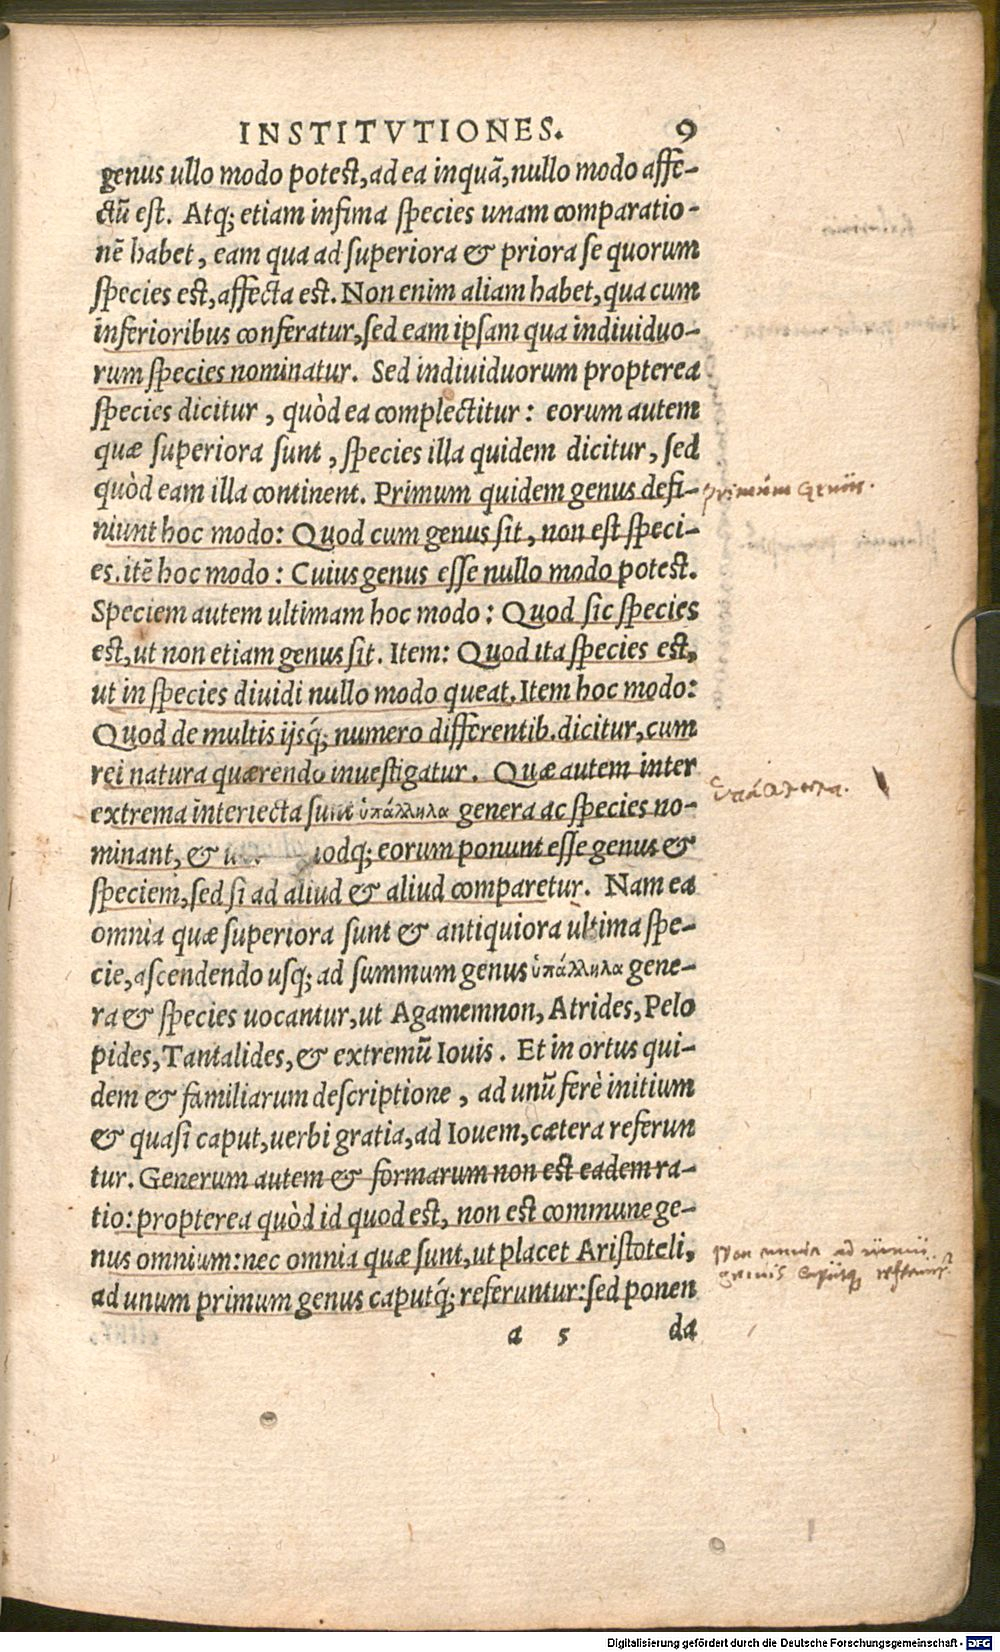 INSTITVTIONES. 9
genus ullo modo potest, ad ea inquã, nullo modo affe-
ctũ est. Atq; etiam infima species unam comparatio-
nẽ habet, eam qua ad superiora & priora se quorum
species est, affecta est. Non enim aliam habet, qua cum
inferioribus conferatur, sed eam ipsam qua indiuiduo-
rum species nominatur. Sed indiuiduorum propterea
species dicitur, quòd ea complectitur: eorum autem
quæ superiora sunt, species illa quidem dicitur, sed
quòd eam illa continent. Primum quidem genus defi-
primum Genus.
niunt hoc modo: Quod cum genus sit, non est speci-
es. itẽ hoc modo: Cuius genus esse nullo modo potest.
Speciem autem ultimam hoc modo: Quod sic species
est, ut non etiam genus sit. Item: Quod ita species est,
ut in species diuidi nullo modo queat. Item hoc modo:
Quod de multis ijsq́; numero differentib. dicitur, cum
rei natura quærendo inuestigatur. Quæ autem inter
extrema interiecta sunt ὑπάλληλα genera ac species no-
minant, & odq; eorum ponunt esse genus &
speciem, sed si ad aliud & aliud comparetur. Nam ea
omnia quæ superiora sunt & antiquiora ultima spe-
cie, ascendendo usq; ad summum genus ὑπάλληλα gene-
ra & species uocantur, ut Agamemnon, Atrides, Pelo
pides, Tantalides, & extremũ Iouis. Et in ortus qui-
dem & familiarum descriptione, ad unũ ferè initium
& quasi caput, uerbi gratia, ad Iouem, cætera referun
tur. Generum autem & formarum non est eadem ra-
tio: propterea quòd id quod est, non est commune ge-
nus omnium: nec omnia quæ sunt, ut placet Aristoteli,
Non omnia ad
ad unum primum genus caputq́; referuntur: sed ponen
genus
a 5 da
Digitalisierung gefördert durch die Deutsche Forschungsgemeinschaft - DFG